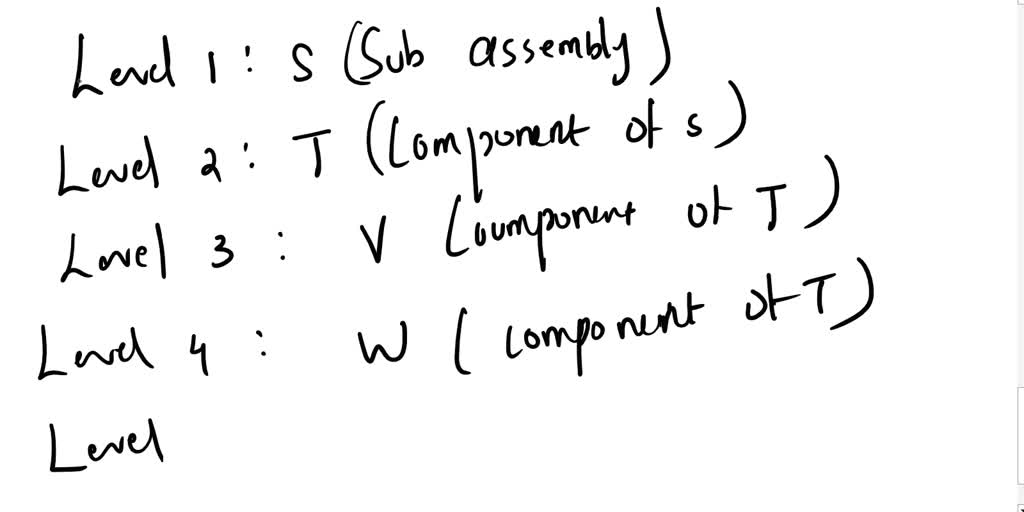 Level 1 : S (Sub assembly)
Level 2 : T (Component of s)
Level 3 : V (Coumponent of T)
Level 4 : W ( Component of T)
Level